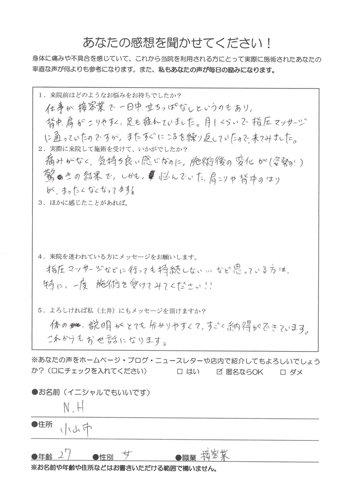 あなたの感想を聞かせてください！
身体に痛みや不具合を感じていて、これから当院を利用される方にとって実際に施術されたあなたの
率直な声が何よりも参考になります。また、私もあなたの声が毎日の励みになります。
1．来院前はどのようなお悩みをお持ちでしたか？
仕事が接客業で一日中立ちっぱなしというのもあり、
背中、肩がこりやすく、足も疲れていました。月1くらいで指圧マッサージ
に通っていたのですが、またすぐにこるを繰り返していたので、来てみました。
2．実際に来院して施術を受けて、いかがでしたか？
痛みがなく、気持ち良い感じなのに、施術後の変化が
驚きの結果で、しかも、悩んでいた肩こりや背中のはり
が、まったくなくなってます!
3．ほかに感じたことがあれば。
4．来院を迷われている方にメッセージをお願いします。
指圧マッサージなどに行っても持続しない…など思っている方は、
特に、一度施術を受けてみてください!!
5．よろしければ私（土井）にもメッセージを頂けますか？
体の、説明がとても分かりやすくて、すごく納得ができています。
これからもお世話になります。
※あなたの声をホームページ・ブログ・ニュースレターや店内で紹介してもよろしいでしょう
か？（□にチェックを入れてください） □ はい ☑ 匿名ならOK □ ダメ
●お名前（イニシャルでもいいです）
N.H
●住所
小山市
●年齢 27 ●性別 女 ●職業 接客業
※お名前や年齢や住所などはお書きいただける範囲で構いません。